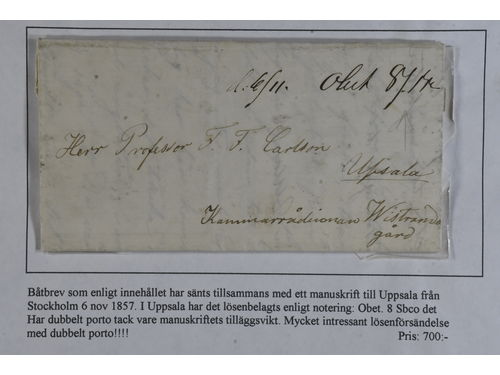 d. 6/11. Obet 8/
Herr Professor F. F. Carlson
Upsala
Kammarrådinnan Wistrands
gård
Båtbrev som enligt innehållet har sänts tillsammans med ett manuskrift till Uppsala från
Stockholm 6 nov 1857. I Uppsala har det lösenbelagts enligt notering: Obet. 8 Sbco det
Har dubbelt porto tack vare manuskriftets tilläggsvikt. Mycket intressant lösenförsändelse
med dubbelt porto!!!! Pris: 700:-